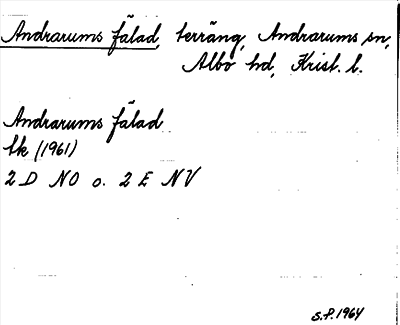 Andrarums fälad, terräng, Andrarums sn,
Albo hd, Krist. l.
Andrarums fälad
tk (1961)
2 D NO o. 2 E NV
S.P. 1964